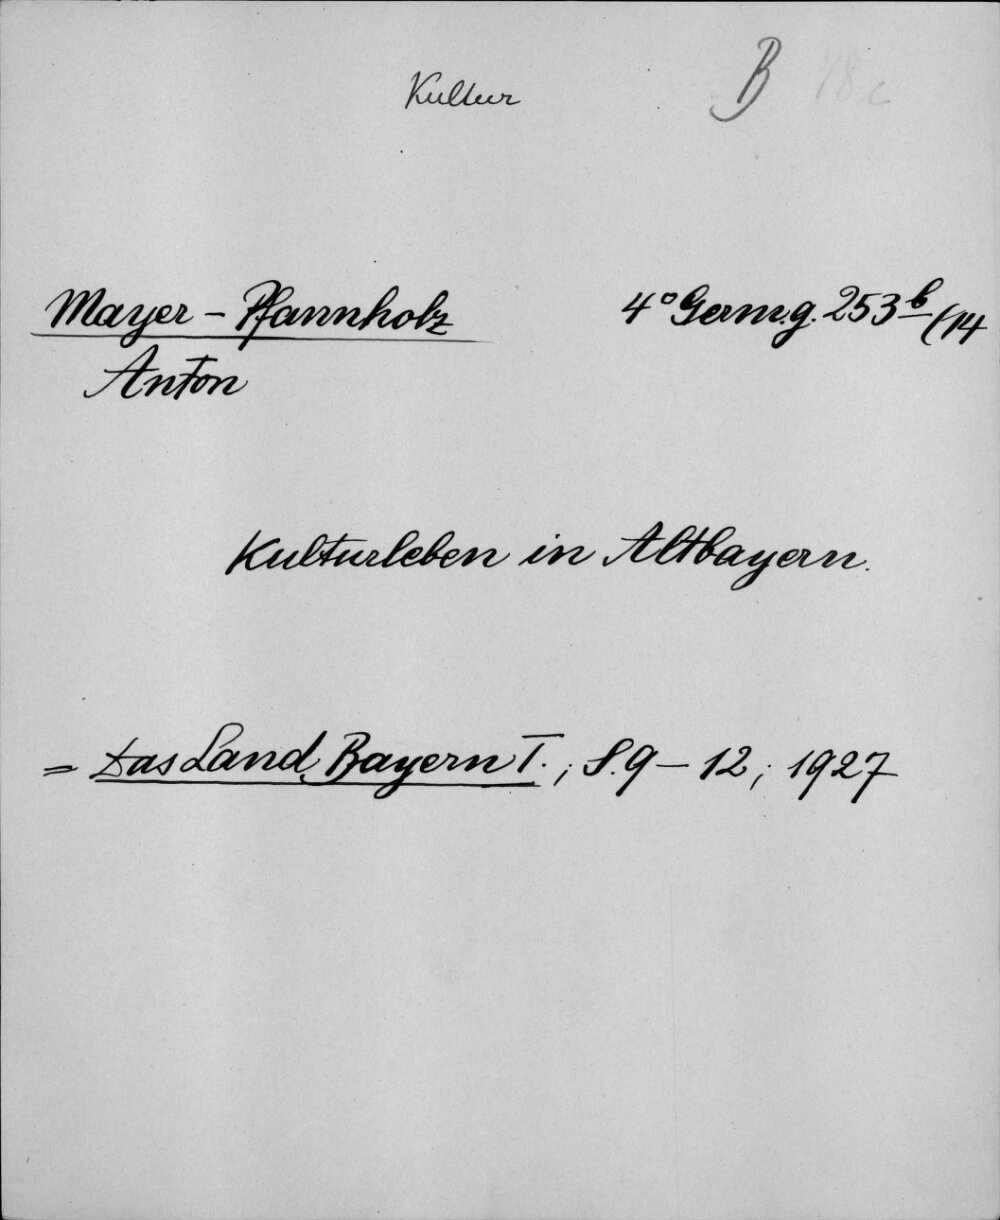 Kultur
B 18 c
Mayer-Pfannholz 4° Germ.g. 253 b/14
Anton
Kulturleben in Altbayern.
= Das Land Bayern I.; S. 9 - 12; 1927